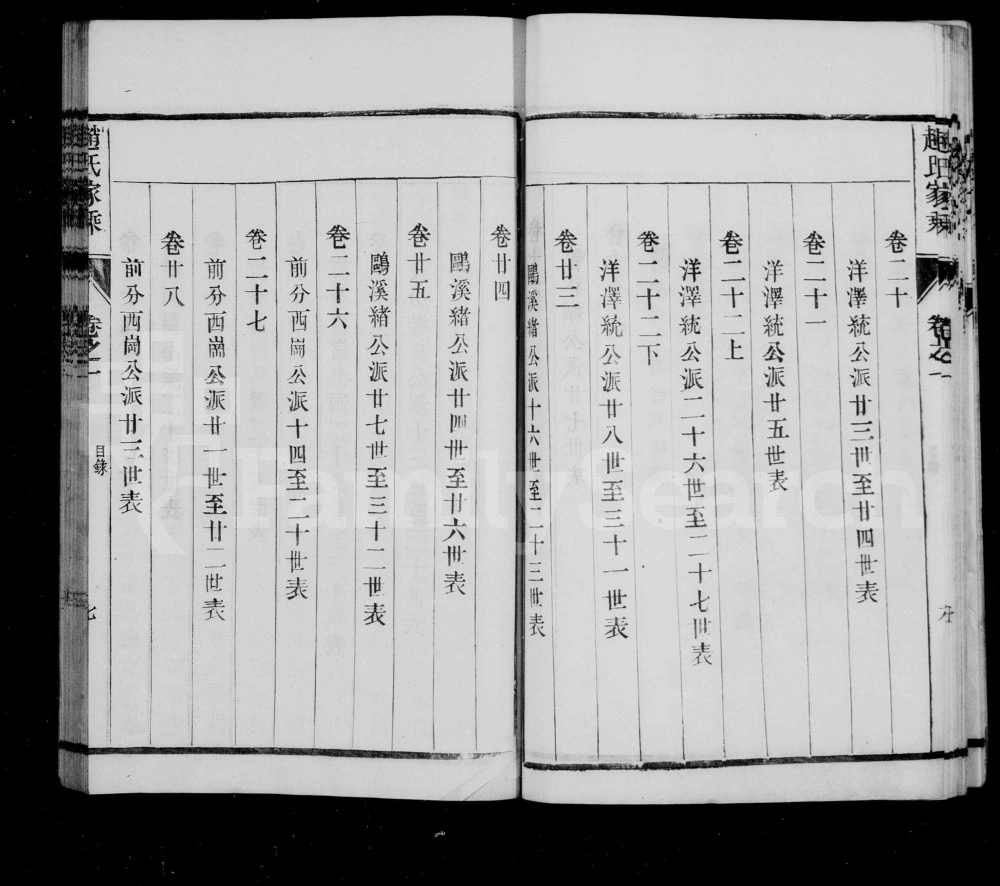 趙氏家乘
卷之一
卷二十
洋澤統公派廿三世至廿四世表
卷二十一
洋澤統公派廿五世表
卷二十二上
洋澤統公派二十六世至二十七世表
卷二十二下
洋澤統公派廿八世至三十一世表
卷廿三
鷗溪緒公派十六世至二十三世表
卷廿四
鷗溪緒公派廿四世至廿六世表
卷廿五
鷗溪緒公派廿七世至三十二世表
卷二十六
前分西崗公派十四至二十世表
卷二十七
前分西崗公派廿一世至廿二世表
卷廿八
前分西崗公派廿三世表
趙氏家乘
卷之一
目錄
七
FamilySearch